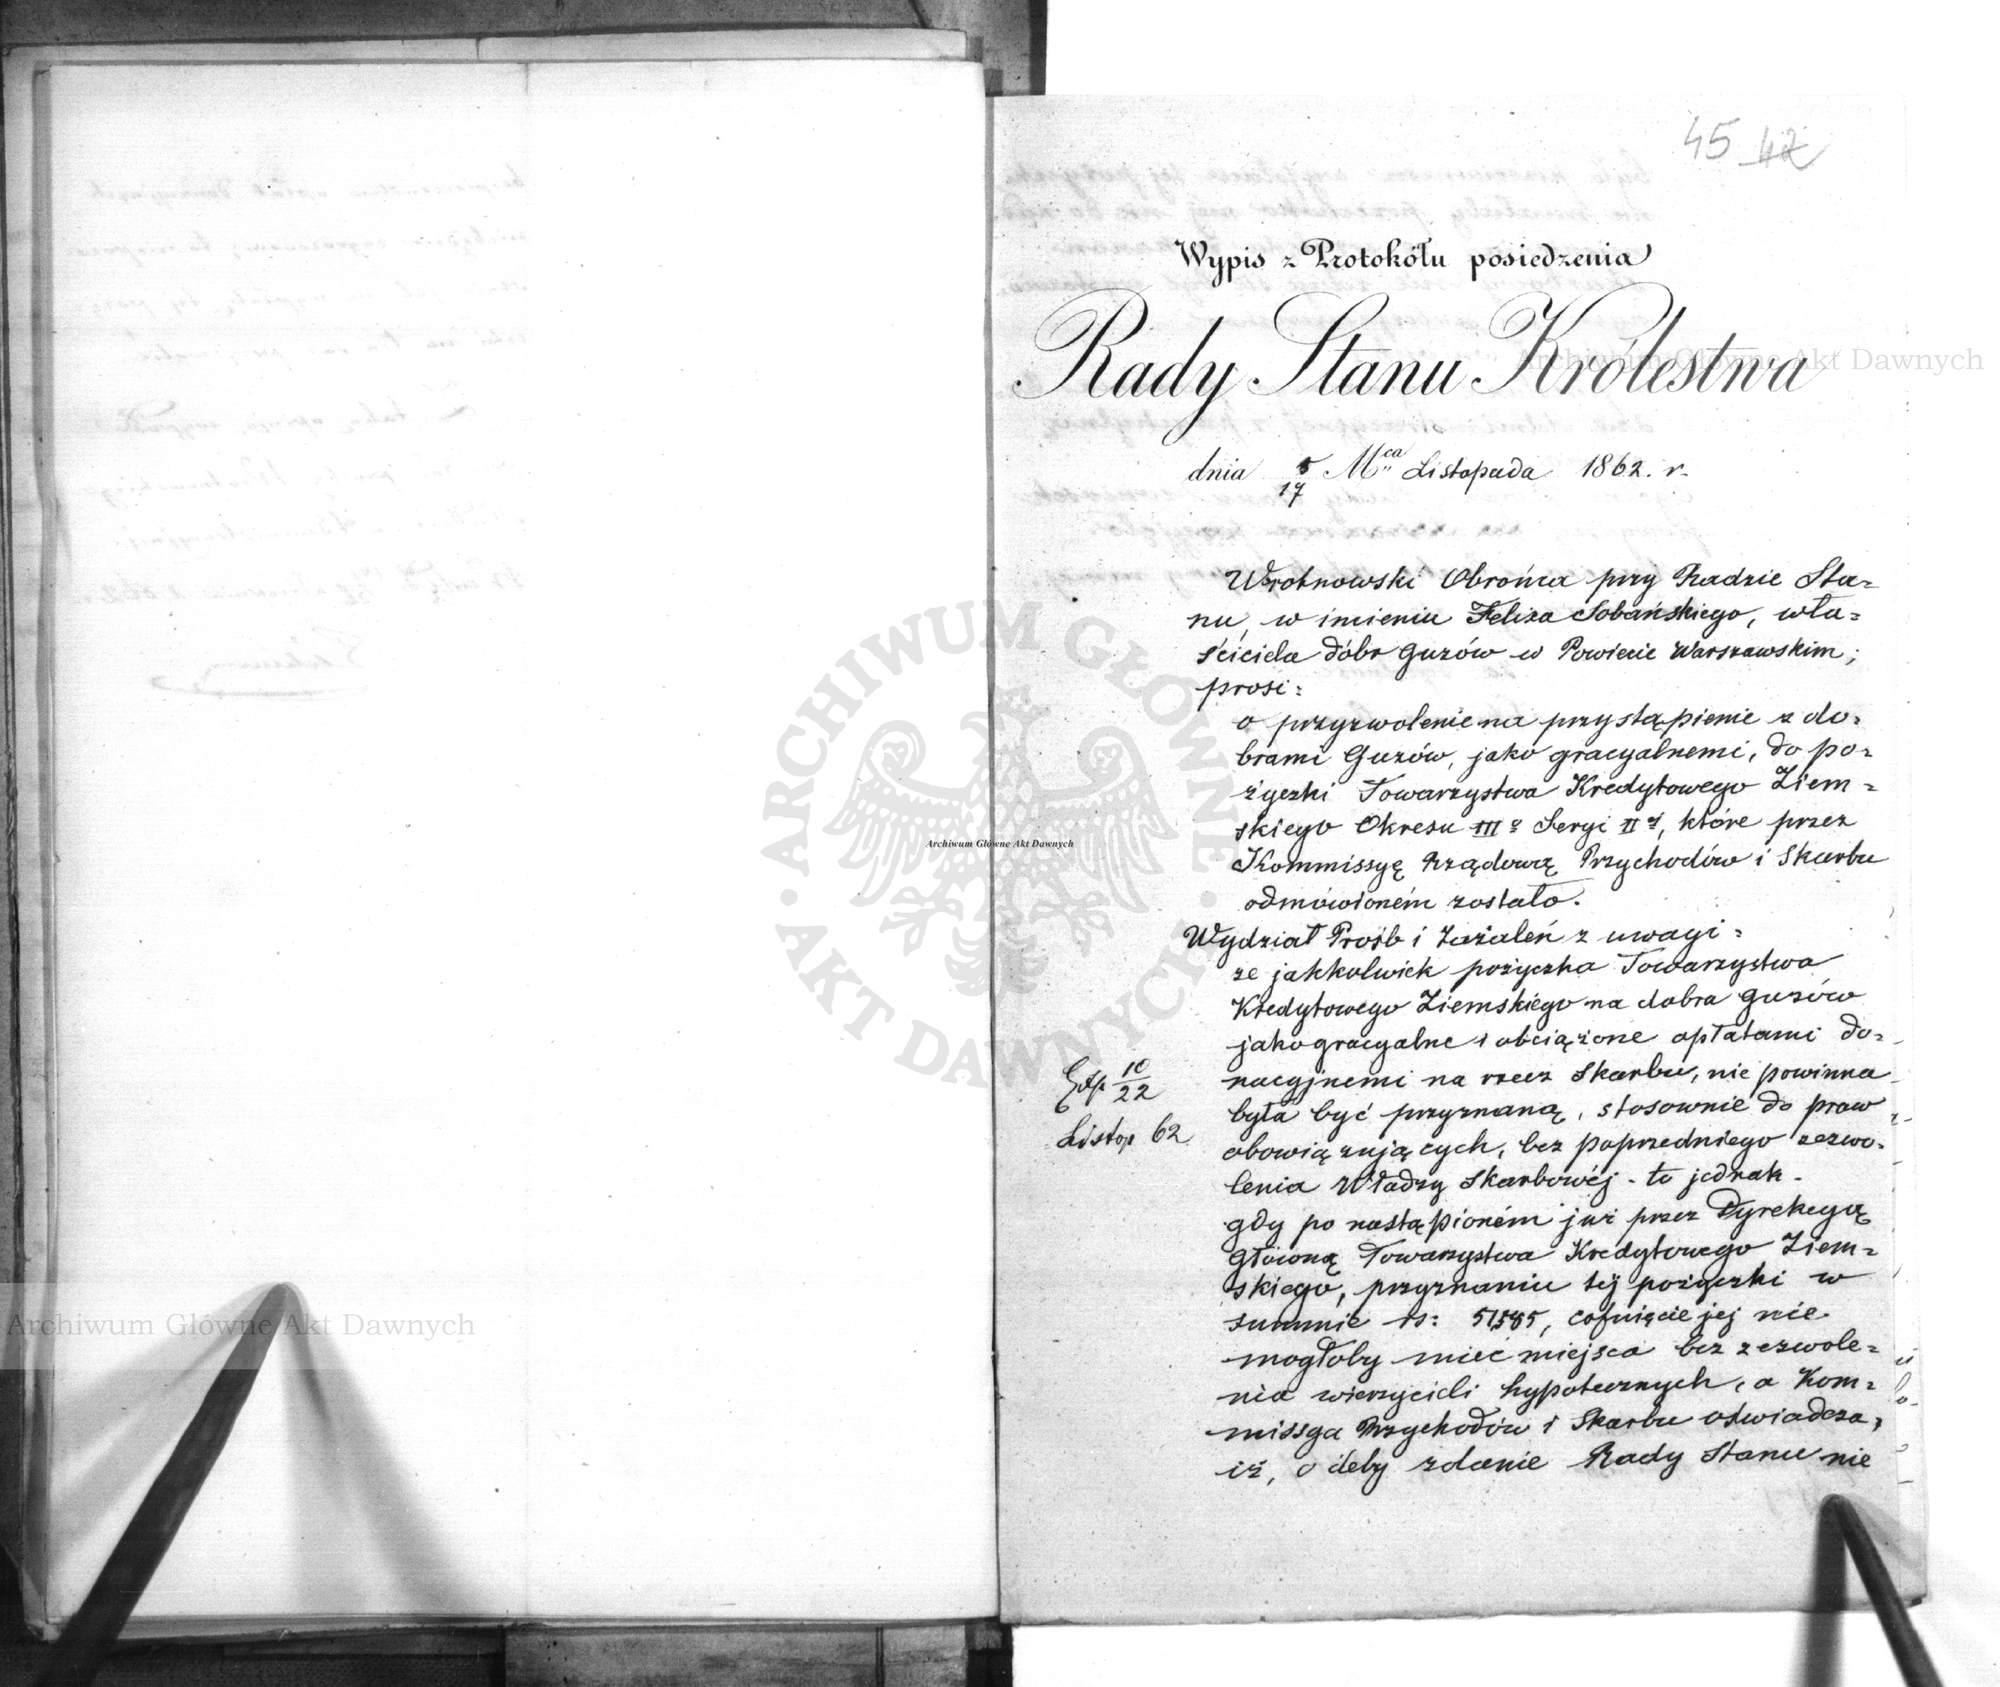 45 42
Wypis z Protokółu posiedzenia
Rady Stanu Królestwa
dnia 5/17 Mca Listopada 1862. r.
Wrotnowski Obrońca przy Radzie Sta=
nu, w imieniu Felixa Sobańskiego, wła=
ściciela dóbr Guzów w Powiecie Warszawskim;
prosi:
o przyzwolenie na przystąpienie z do=
brami Guzów, jako gracyalnemi, do po=
życzki Towarzystwa Kredytowego Ziem=
skiego Okresu IIIo Seryi IIej, które przez
Kommissyę Rządową Przychodów i Skarbu
odmówioném zostało.
Wydział Prośb i Zażaleń z uwagi:
że jakkolwiek pożyczka Towarzystwa
Kredytowego Ziemskiego na dobra Guzów
jako gracyalne i obciążone opłatami do=
nacyjnemi na rzecz Skarbu, nie powinna
była być przyznaną, stosownie do praw
obowiązujących, bez poprzedniego zezwo=
lenia Władzy Skarbowéj - to jednak -
gdy po nastąpioném już przez Dyrekcyą
Główną Towarzystwa Kredytowego Ziem=
skiego, przyznaniu téj pożyczki w
summie rs: 51,585, cofnięcie jej nie
mogłoby mieć miejsca bez zezwole=
nia wierzycieli hypotecznych, a Kom=
missya Przychodów i Skarbu oświadcza,
iż, o ileby zdanie Rady Stanu nie
Exp 10/22
Listop 62
Archiwum Główne Akt Dawnych
Archiwum Główne Akt Dawnych
Archiwum Główne Akt Dawnych
ARCHIWUM GŁÓWNE · AKT DAWNYCH ·